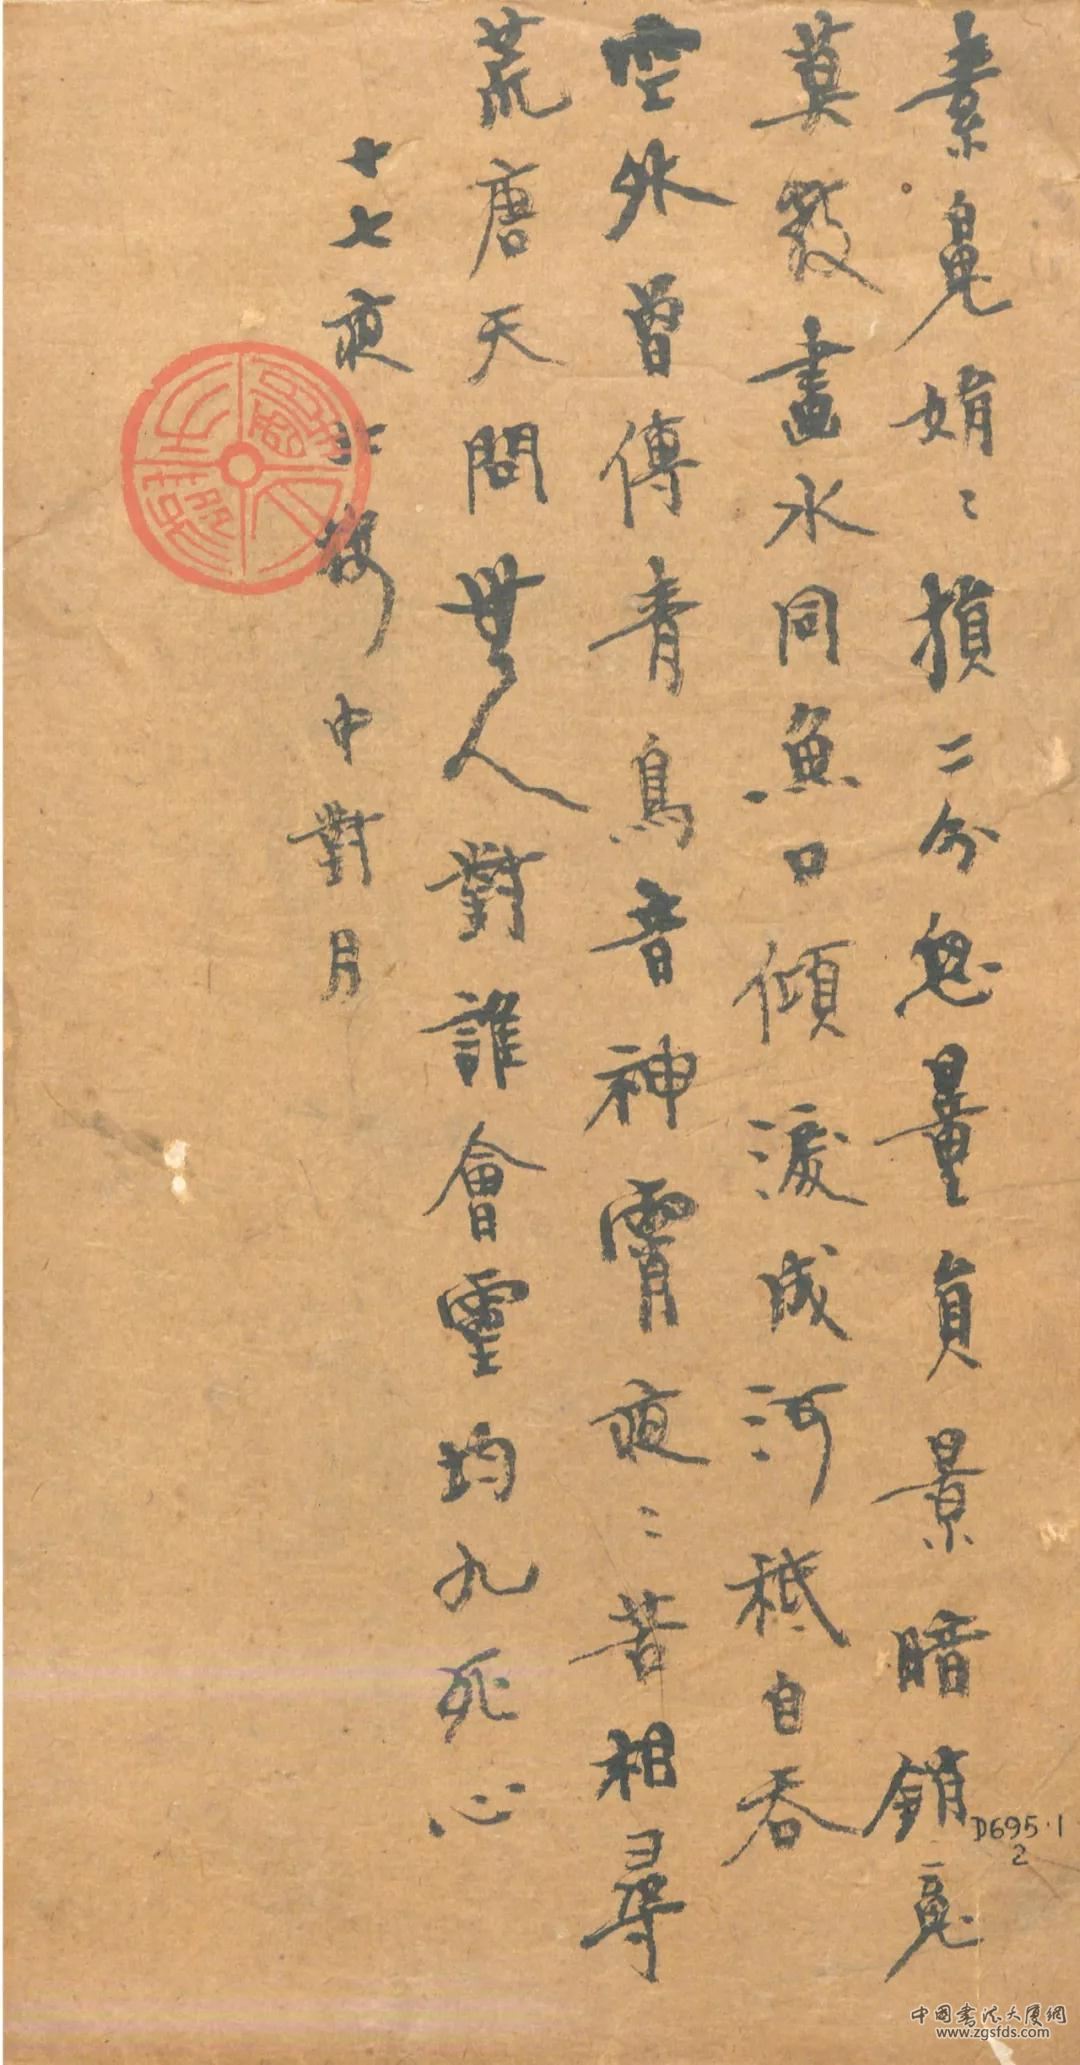 素娟〻損二分思量負景暗銷䰟
莫教畫水同魚口傾淚成河秪自吞
雲外曾傳青鳥音神霄夜〻苦相尋
荒唐天問無人對誰會靈均九死心
十七夜中對月
D695·1
2
中國书法大厦網
www.zgsfds.com